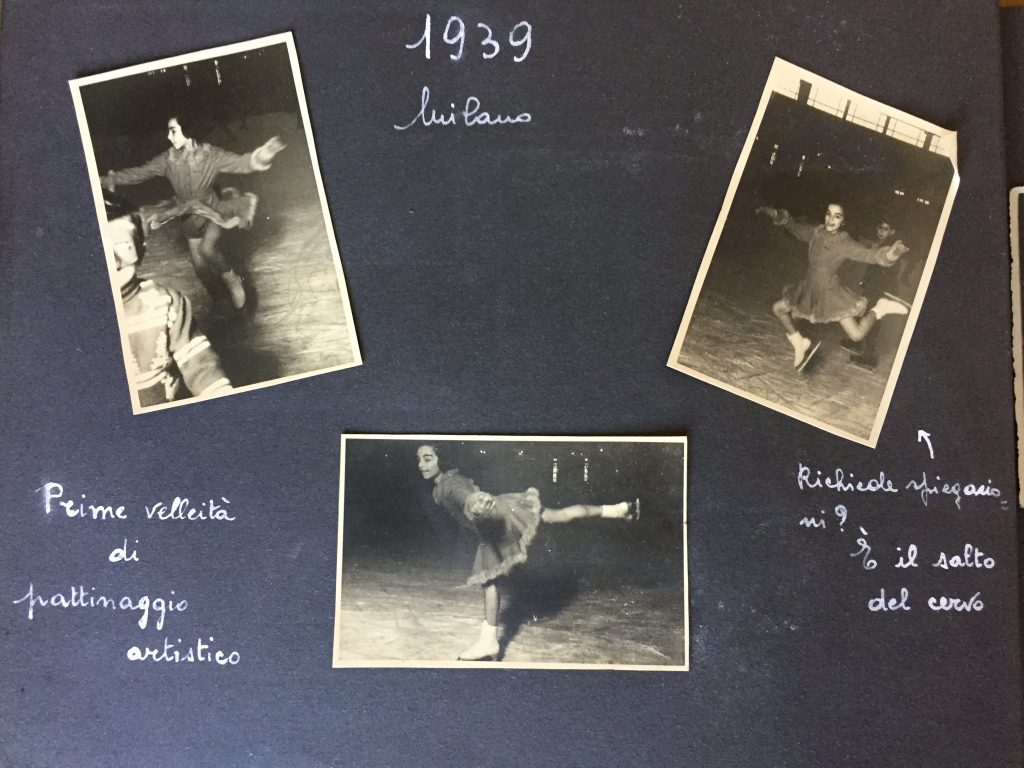 1939
Milano
Prime velleità
di
pattinaggio
artistico
Richiede spiegazio-
ni?
È il salto
del cervo